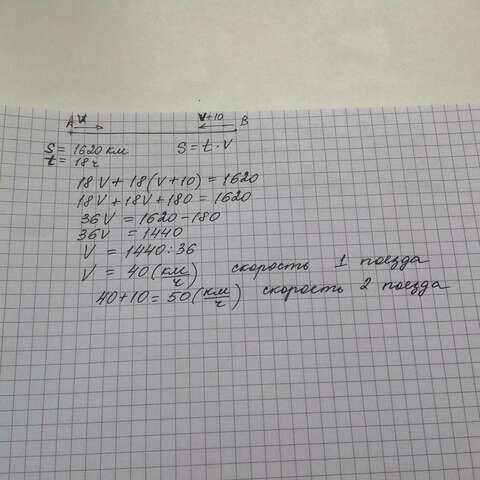 A V V+10 B
S = 1620 км S = t · V
t = 18 ч
18V + 18(V+10) = 1620
18V + 18V + 180 = 1620
36V = 1620 - 180
36V = 1440
V = 1440 : 36
V = 40 (км/ч) скорость 1 поезда
40 + 10 = 50 (км/ч) скорость 2 поезда